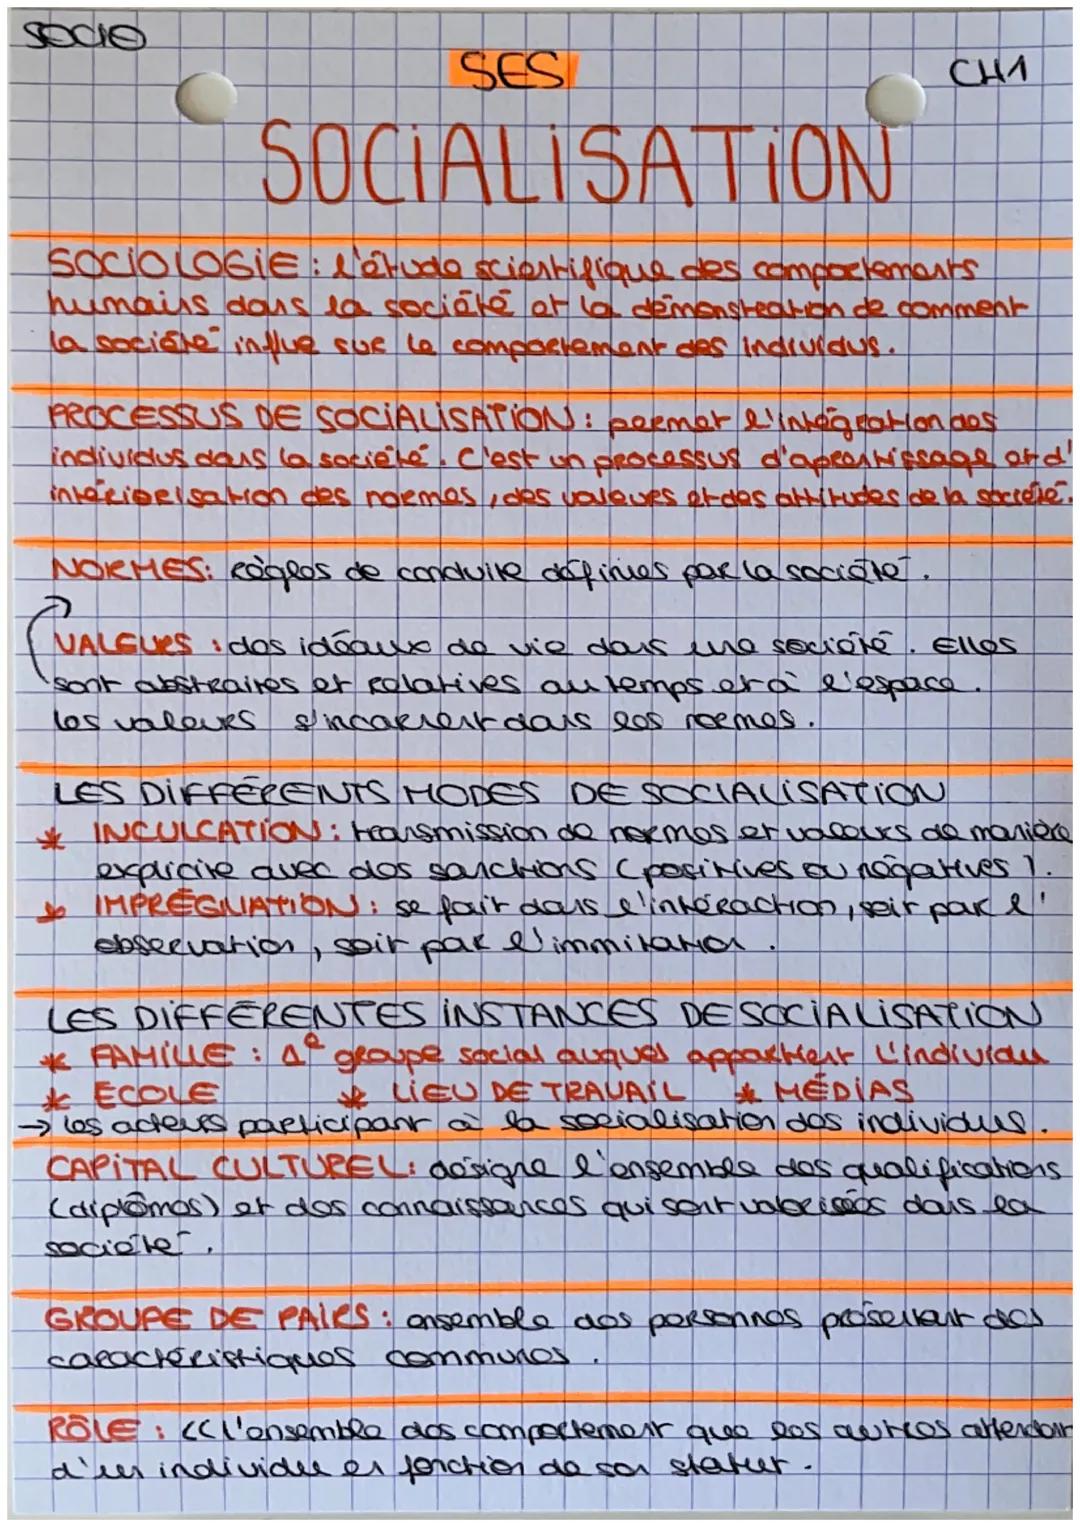 SOCIO
SES
CH1
SOCIALISATION
SOCIOLOGIE : l'étude scientifique des comportements
humains dans la société et la démonstration de comment
la société influe sur le comportement des individus.
PROCESSUS DE SOCIALISATION : permet l'intégration des
individus dans la société. C'est un processus d'aprentissage et d'
intériorisation des normes, des valeurs et des attitudes de la société.
NORMES : Règles de conduite définies par la société.
VALEURS : des idéaux de vie dans une société. Elles
sont abstraites et relatives au temps et à l'espace.
les valeurs s'incarnent dans les normes.
LES DIFFÉRENTS MODES DE SOCIALISATION
* INCULCATION : transmission de normes et valeurs de manière
explicite avec des sanctions (positives ou négatives).
* IMPRÉGNATION : se fait dans l'intéraction, soit par l'
observation, soit par l'immitation.
LES DIFFÉRENTES INSTANCES DE SOCIALISATION
* FAMILLE : 1e groupe social auquel appartient l'individu
* ECOLE * LIEU DE TRAVAIL * MÉDIAS
→ les acteurs participant à la socialisation des individus.
CAPITAL CULTUREL : désigne l'ensemble des qualifications
(diplômes) et des connaissances qui sont valorisées dans la
société.
GROUPE DE PAIRS : ensemble des personnes présentant des
caractéristiques communes.
RÔLE : <<l'ensemble des comportement que les autres attendent
d'un individu en fonction de son statut.